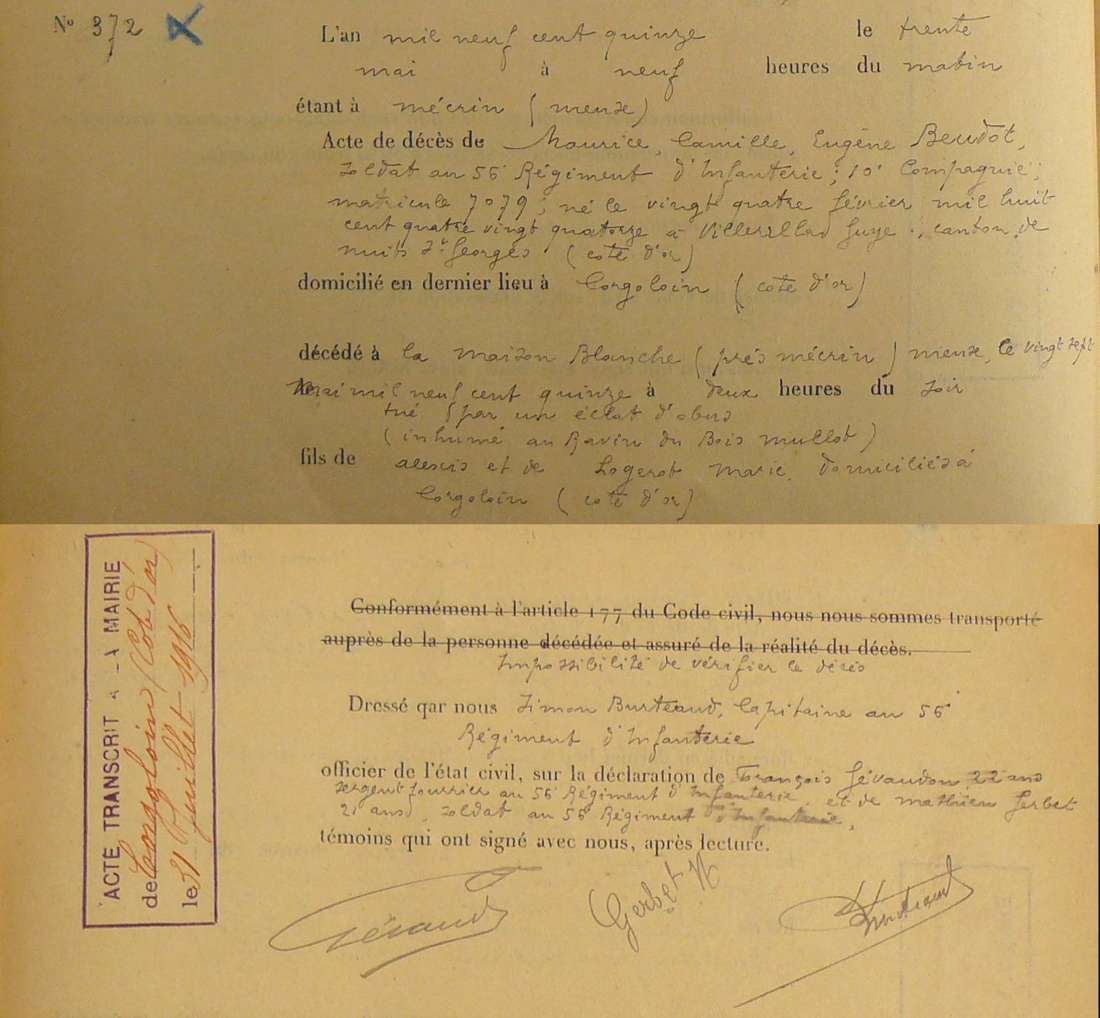 N° 372
L'an mil neuf cent quinze le trente
mai à neuf heures du matin
étant à mécrin (meuse)
Acte de décès de Maurice, Camille, Eugène Beudot,
soldat au 56e Régiment d'Infanterie; 10e Compagnie;
matricule 7079; né le vingt quatre février mil huit
cent quatre vingt quatorze à, canton de
nuits St Georges (cote d'or)
domicilié en dernier lieu à Corgoloin (cote d'or)
décédé à la maison Blanche (près mécrin) meuse, le vingt sept
mai mil neuf cent quinze à deux heures du soir
tué par un éclat d'obus
(inhumé au Ravin du Bois mullot)
fils de alexis et de Logerot marie, domiciliés à
Corgoloin (cote d'or)
ACTE TRANSCRIT A LA MAIRIE
de Corgoloin (Cote d'or)
le 31 Juillet 1916
Conformément à l'article 177 du Code civil, nous nous sommes transporté
auprès de la personne décédée et assuré de la réalité du décès.
Impossibilité de vérifier le décès
Dressé qar nous Simon Burteaud, Capitaine au 56e
Régiment d'Infanterie
officier de l'état civil, sur la déclaration de François Gévaudon, 22 ans
sergent fourrier au 56e Régiment d'Infanterie, et de mathieu Gerbet
21 ans, soldat au 56e Régiment d'Infanterie,
témoins qui ont signé avec nous, après lecture.
Gerbet M